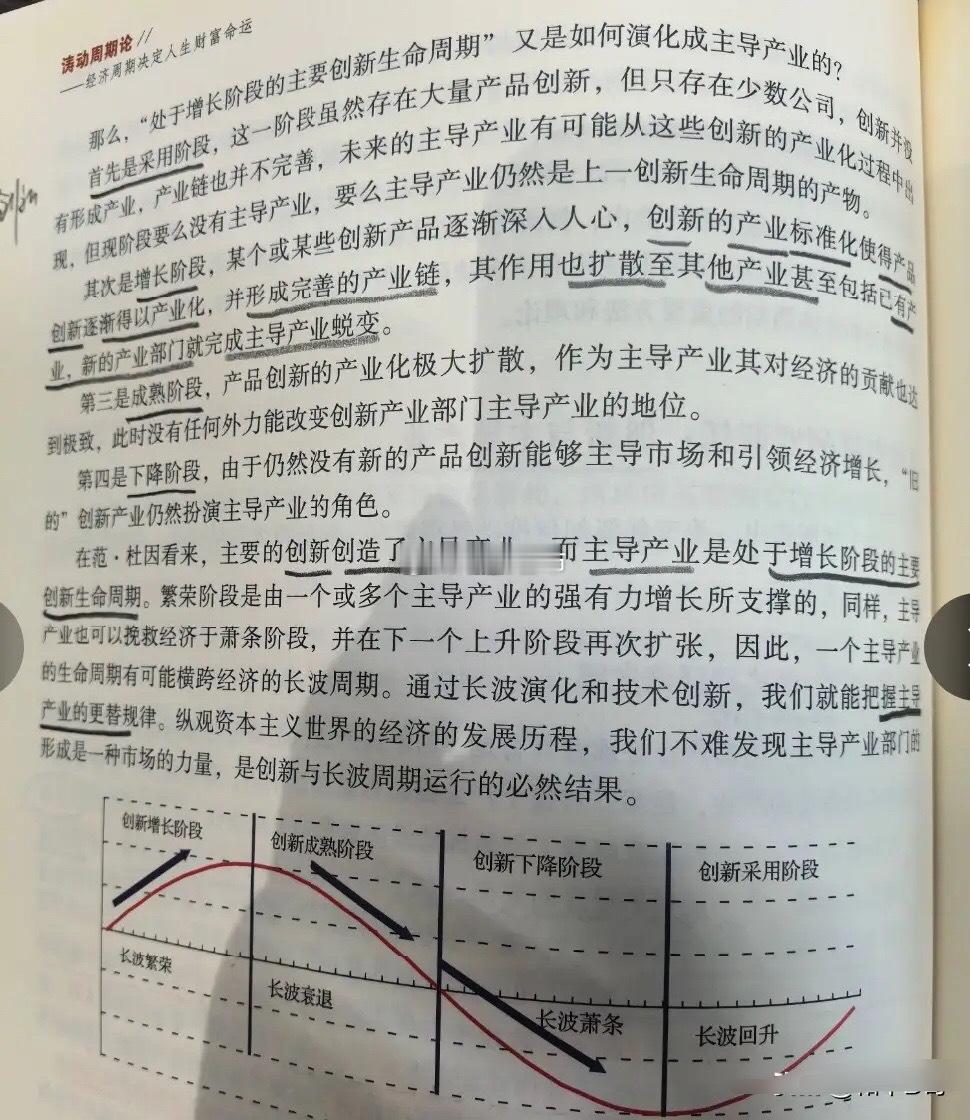 涛动周期论//
——经济周期决定人生财富命运
那么，“处于增长阶段的主要创新生命周期”又是如何演化成主导产业的？
首先是采用阶段，这一阶段虽然存在大量产品创新，但只存在少数公司，创新并没
有形成产业，产业链也并不完善，未来的主导产业有可能从这些创新的产业化过程中出
现，但现阶段要么没有主导产业，要么主导产业仍然是上一创新生命周期的产物。
其次是增长阶段，某个或某些创新产品逐渐深入人心，创新的产业标准化使得产品
创新逐渐得以产业化，并形成完善的产业链，其作用也扩散至其他产业甚至包括已有产
业，新的产业部门就完成主导产业蜕变。
第三是成熟阶段，产品创新的产业化极大扩散，作为主导产业其对经济的贡献也达
到极致，此时没有任何外力能改变创新产业部门主导产业的地位。
第四是下降阶段，由于仍然没有新的产品创新能够主导市场和引领经济增长，“旧
的”创新产业仍然扮演主导产业的角色。
在范·杜因看来，主要的创新创造了 而主导产业是处于增长阶段的主要
创新生命周期。繁荣阶段是由一个或多个主导产业的强有力增长所支撑的，同样，主导
产业也可以挽救经济于萧条阶段，并在下一个上升阶段再次扩张，因此，一个主导产业
的生命周期有可能横跨经济的长波周期。通过长波演化和技术创新，我们就能把握主导
产业的更替规律。纵观资本主义世界的经济的发展历程，我们不难发现主导产业部门的
形成是一种市场的力量，是创新与长波周期运行的必然结果。
创新增长阶段
创新成熟阶段
创新下降阶段
创新采用阶段
长波繁荣
长波衰退
长波萧条
长波回升